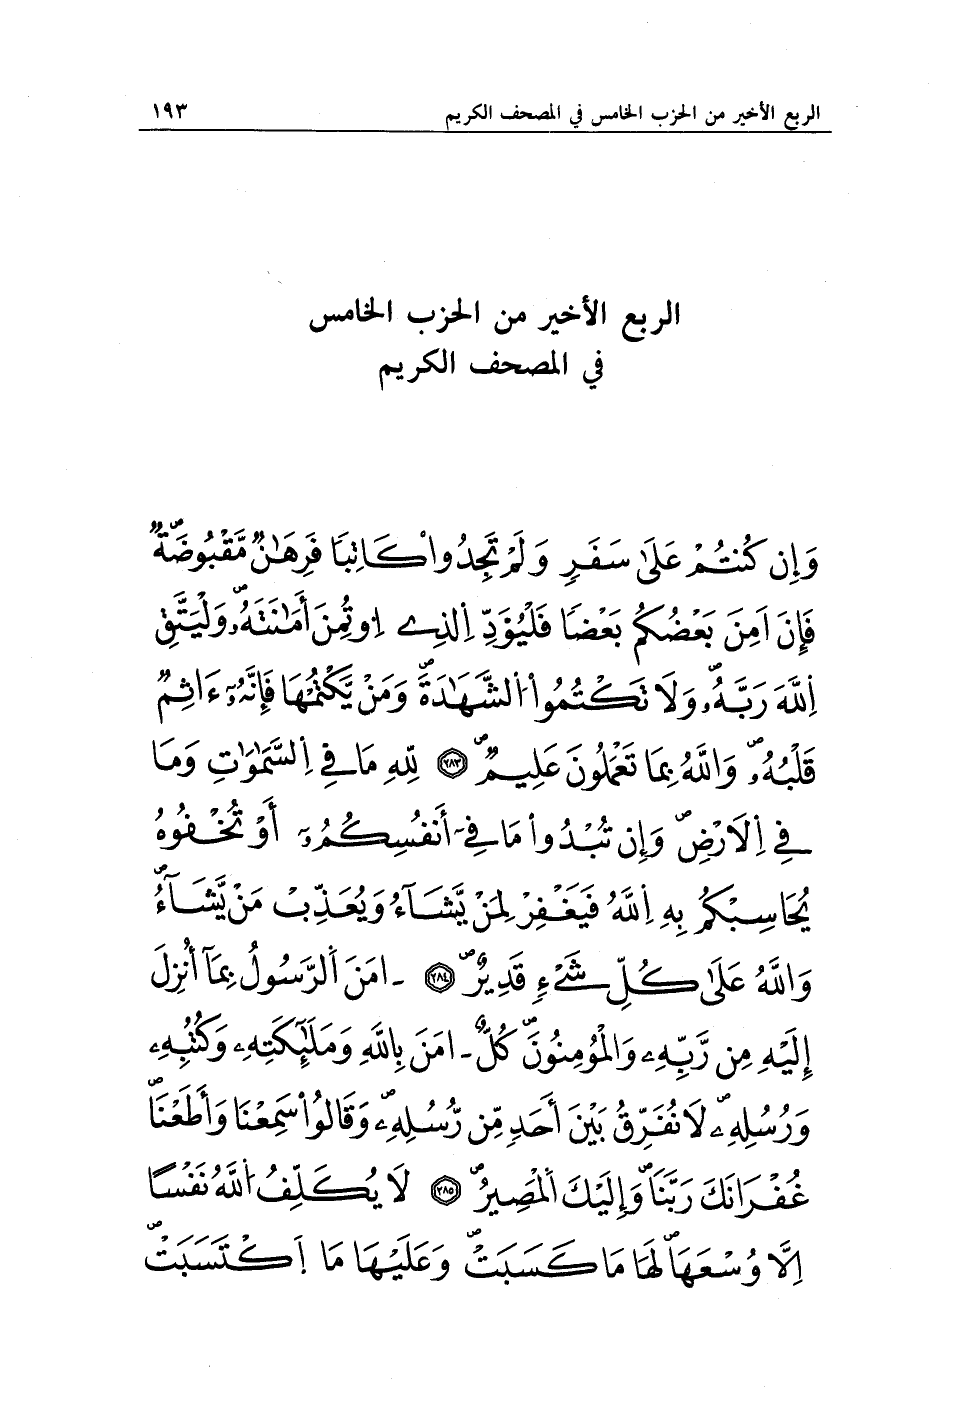 الربع الأخير من الحزب الخامس في المصحف الكريم ١٩٣
الربع الأخير من الحزب الخامس
في المصحف الكريم
وَإِن كُنتُمْ عَلَىٰ سَفَرٍ وَلَمْ تَجِدُواْ كَاتِبًا فَرِهَٰنٌ مَّقْبُوضَةٌ
فَإِنَ اَمِنَ بَعْضُكُم بَعْضًا فَلْيُؤَدِّ اِلذِے اِوتُمِنَ أَمَٰنَتَهُۥ وَلْيَتَّقِ
اِللَّهَ رَبَّهُۥ وَلَا تَكْتُمُواْ اُلشَّهَٰدَةَ وَمَنْ يَّكْتُمْهَا فَإِنَّهُۥٓ ءَاثِمٌ
قَلْبُهُۥ وَاللَّهُ بِمَا تَعْمَلُونَ عَلِيمٌ ۝٢٨٣ لِلهِ مَا فِے اِلسَّمَٰوَٰتِ وَمَا
فِے اِلَارْضِ وَإِن تُبْدُواْ مَا فِےٓ أَنفُسِكُمُۥٓ أَوْ تُخْفُوهُ
يُحَاسِبْكُم بِهِ اِللَّهُ فَيَغْفِرْ لِمَنْ يَّشَآءُ وَيُعَذِّبْ مَنْ يَّشَآءُ
وَاللَّهُ عَلَىٰ كُلِّ شَےْءٍ قَدِيرٌ ۝٢٨٤ ءَامَنَ اَلرَّسُولُ بِمَآ أُنزِلَ
إِلَيْهِ مِن رَّبِّهِۦ وَالْمُؤْمِنُونَ كُلٌّ ـ امَنَ بِاللَّهِ وَمَلَٰٓئِكَتِهِۦ وَكُتُبِهِۦ
وَرُسُلِهِۦ لَا نُفَرِّقُ بَيْنَ أَحَدٍ مِّن رُّسُلِهِۦ وَقَالُواْ سَمِعْنَا وَأَطَعْنَا
غُفْرَانَكَ رَبَّنَا وَإِلَيْكَ اَلْمَصِيرُ ۝٢٨٥ لَا يُكَلِّفُ اُللَّهُ نَفْسًا
اِلَّا وُسْعَهَا لَهَا مَا كَسَبَتْ وَعَلَيْهَا مَا اَكْتَسَبَتْ